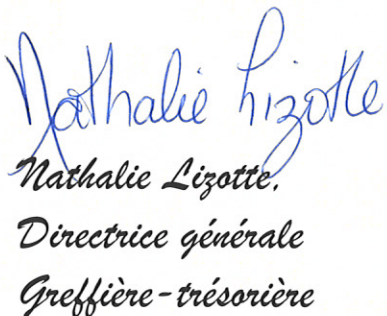 Nathalie Lizotte
Nathalie Lizotte,
Directrice générale
Greffière-trésorière